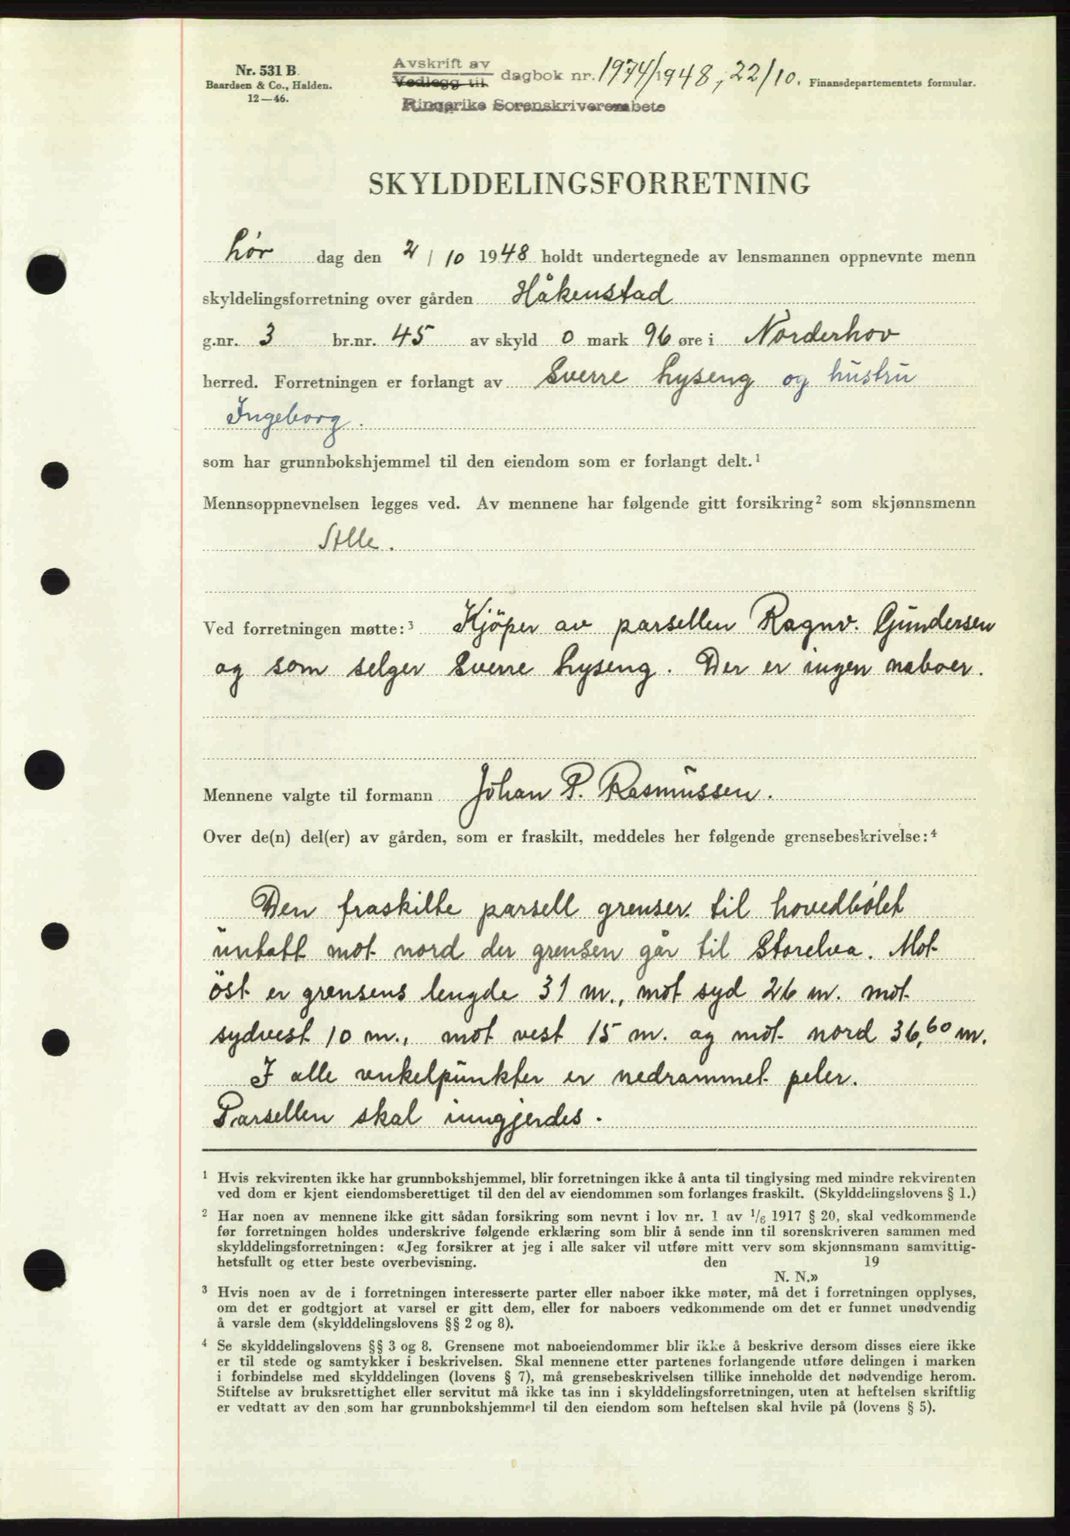 Nr. 531 B.
Baardsen & Co., Halden.
12—46.
Avskrift av
Vedlegg til dagbok nr. 1974/1948, 22/10. Finansdepartementets formular.
Ringerike Sorenskriverembete
SKYLDDELINGSFORRETNING
Lør dag den 2/10 1948 holdt undertegnede av lensmannen oppnevnte menn
skyldelingsforretning over gården Håkenstad
g.nr. 3 br.nr. 45 av skyld 0 mark 96 øre i Norderhov
herred. Forretningen er forlangt av Sverre Lyseng og hustru
Ingeborg.
som har grunnbokshjemmel til den eiendom som er forlangt delt.¹
Mennsoppnevnelsen legges ved. Av mennene har følgende gitt forsikring² som skjønnsmenn
Alle.
Ved forretningen møtte:³ Kjöper av parsellen Ragnv. Gundersen
og som selger Sverre Lyseng. Der er ingen naboer.
Mennene valgte til formann Johan P. Rasmussen.
Over de(n) del(er) av gården, som er fraskilt, meddeles her følgende grensebeskrivelse:⁴
Den fraskilte parsell grenser til hovedbölet
untatt mot nord der grensen går til Storelva. Mot
öst er grensens lengde 31 m., mot syd 26 m. mot
sydvest 10 m., mot vest 15 m. og mot nord 36,60 m.
I alle vinkelpunkter er nedrammet peler.
Parsellen skal inngjerdes.
¹ Hvis rekvirenten ikke har grunnbokshjemmel, blir forretningen ikke å anta til tinglysing med mindre rekvirenten
ved dom er kjent eiendomsberettiget til den del av eiendommen som forlanges fraskilt. (Skylddelingslovens § 1.)
² Har noen av mennene ikke gitt sådan forsikring som nevnt i lov nr. 1 av 1/6 1917 § 20, skal vedkommende
før forretningen holdes underskrive følgende erklæring som blir å sende inn til sorenskriveren sammen med
skylddelingsforretningen: «Jeg forsikrer at jeg i alle saker vil utføre mitt verv som skjønnsmann samvittig-
hetsfullt og etter beste overbevisning. den 19
N. N.»
³ Hvis noen av de i forretningen interesserte parter eller naboer ikke møter, må det i forretningen opplyses,
om det er godtgjort at varsel er gitt dem, eller for naboers vedkommende om det er funnet unødvendig
å varsle dem (skylddelingslovens §§ 2 og 8).
⁴ Se skylddelingslovens §§ 3 og 8. Grensene mot naboeiendommer blir ikke å beskrive dersom disses eiere ikke
er til stede og samtykker i beskrivelsen. Skal mennene etter partenes forlangende utføre delingen i marken
i forbindelse med skylddelingen (lovens § 7), må grensebeskrivelsen tillike inneholde det nødvendige herom.
Stiftelse av bruksrettighet eller servitut må ikke tas inn i skylddelingsforretningen, uten at heftelsen skriftlig
er vedtatt av den som har grunnbokshjemmel til den eiendom som heftelsen skal hvile på (lovens § 5).